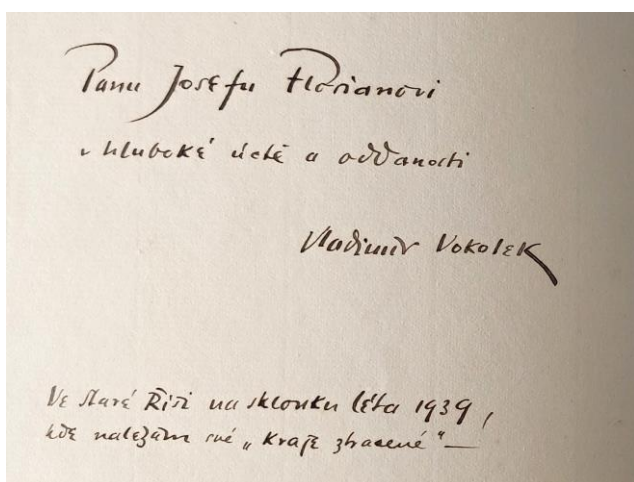 Panu Josefu Florianovi
v hluboké úctě a oddanosti
Vladimír Vokolek
Ve Staré Říši na sklonku léta 1939,
kde nalézám své „Kraje ztracené“ —